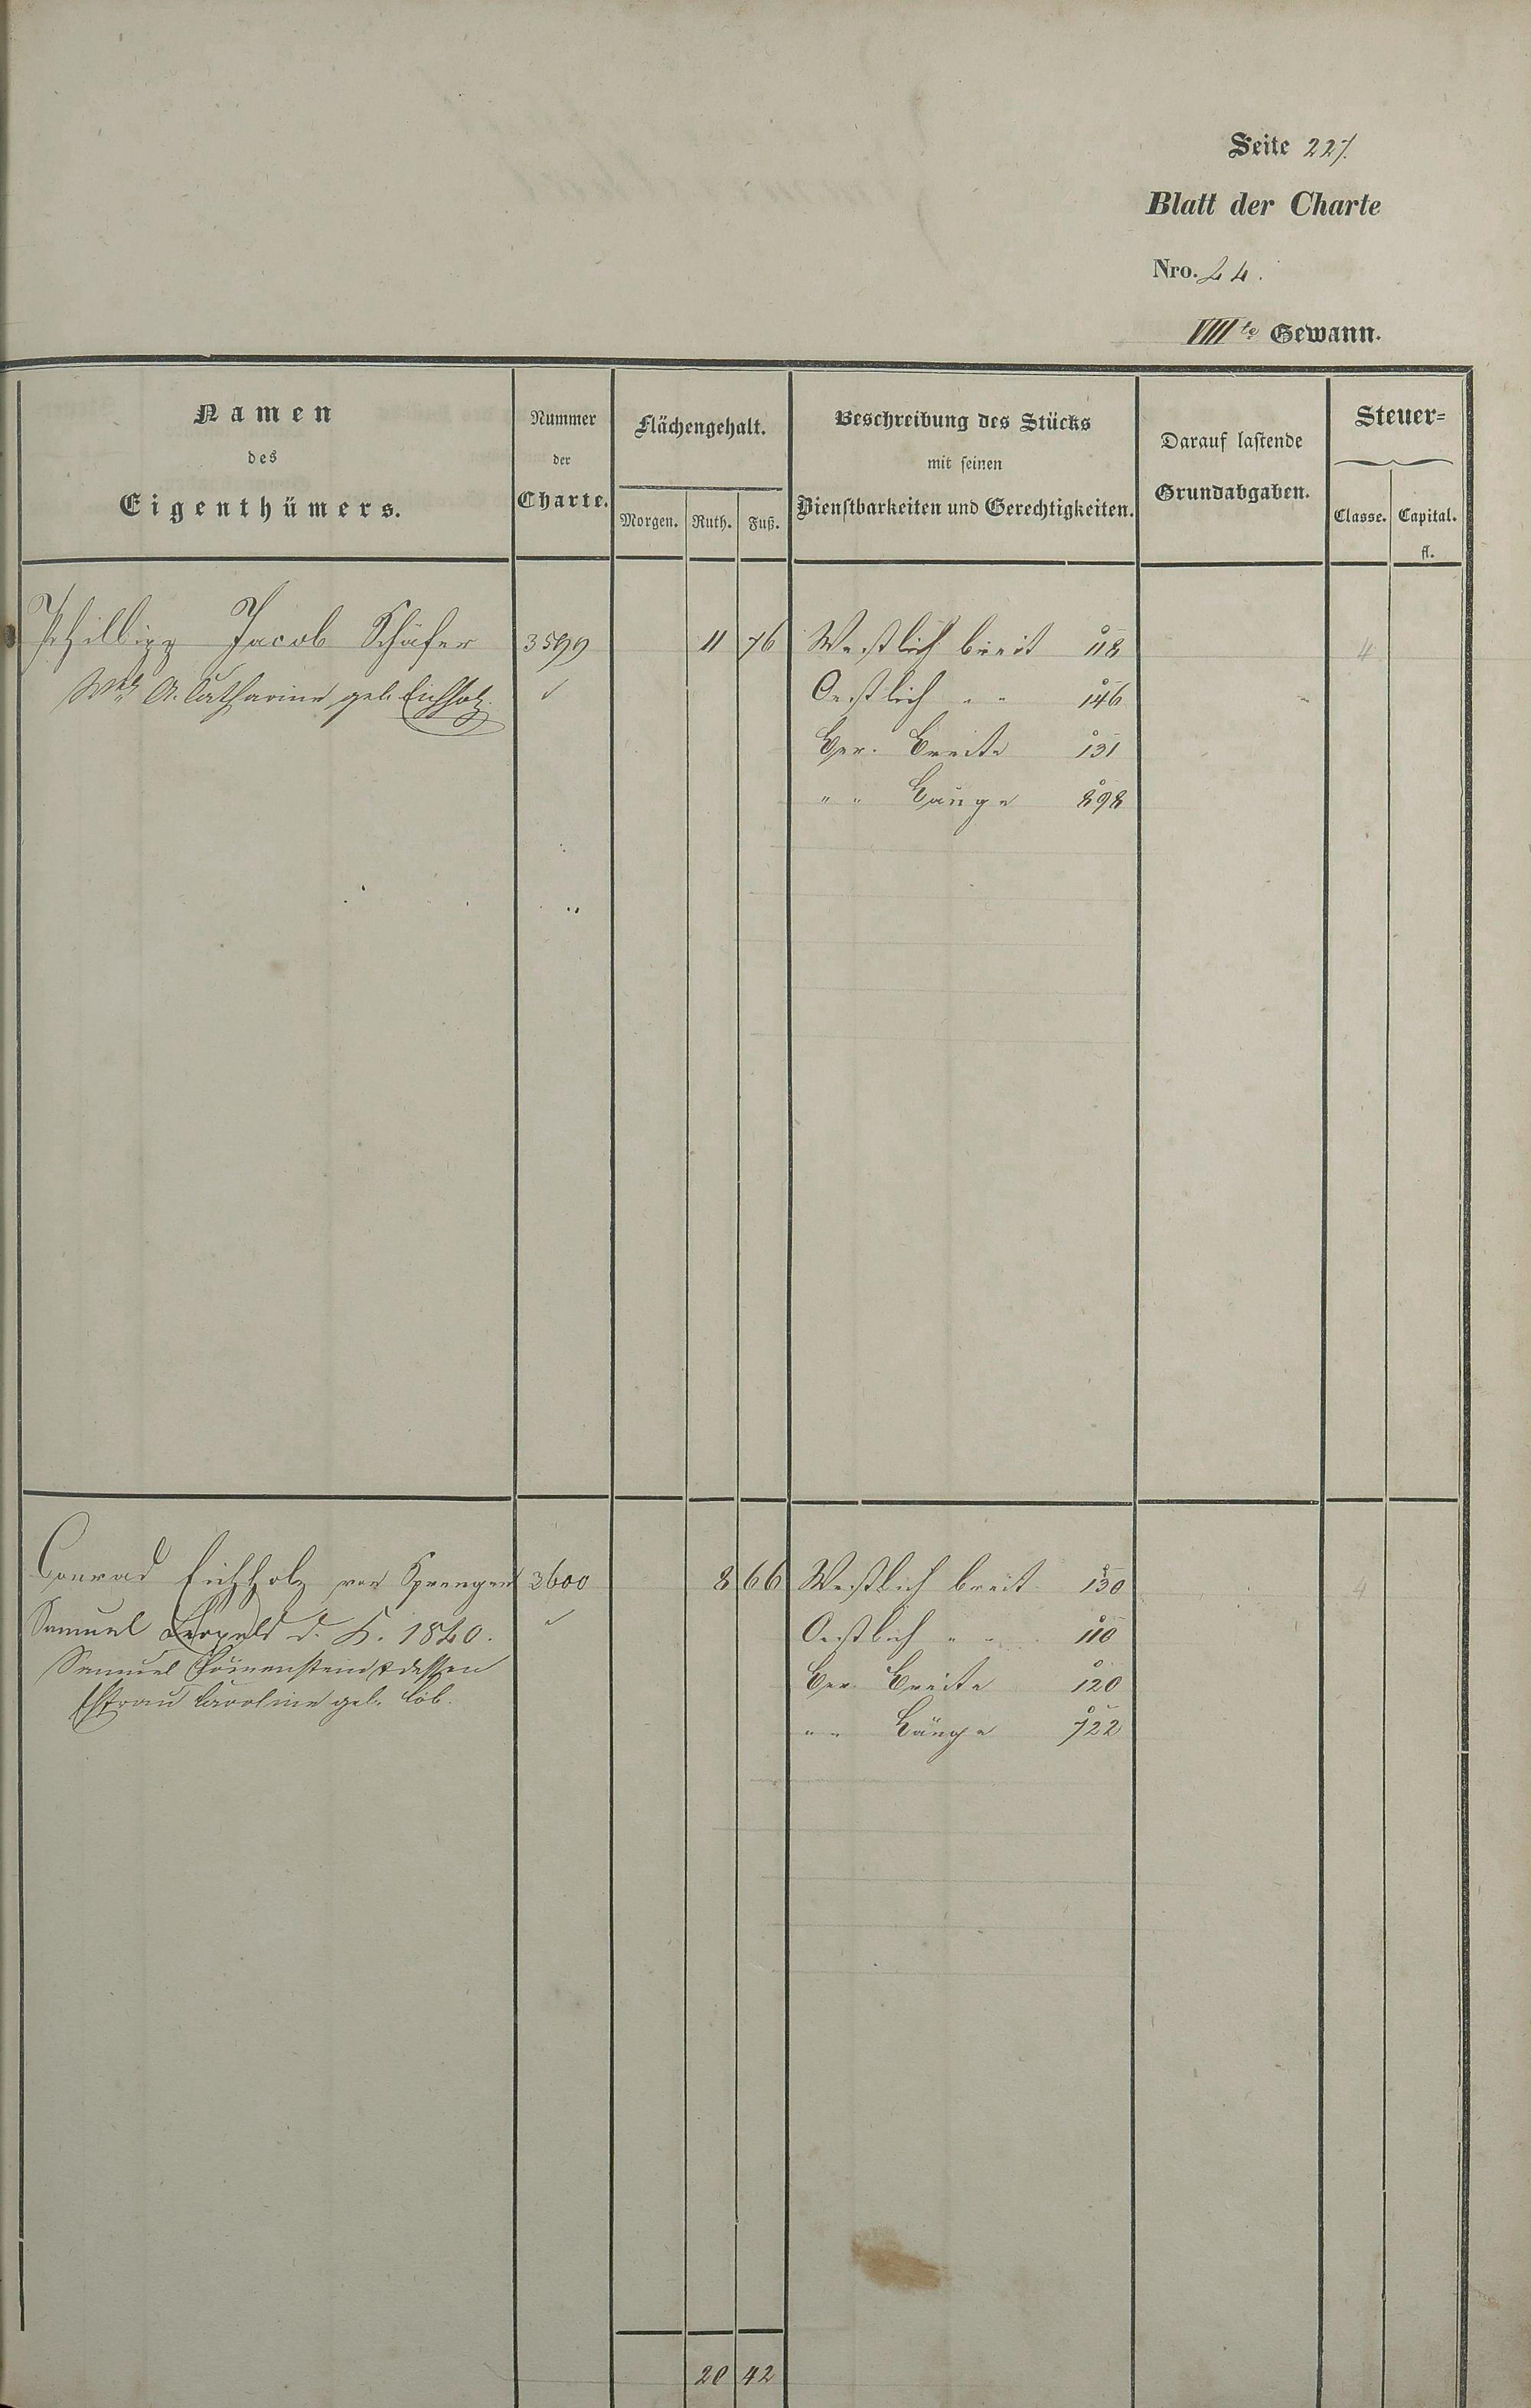 Seite 227.
Blatt der Charte
Nro. 24.
VIIIte Gewann.
Namen des Eigenthümers.
Nummer der Charte.
Flächengehalt.
Morgen. Ruth. Fuß.
Beschreibung des Stücks mit seinen Dienstbarkeiten und Gerechtigkeiten.
Darauf lastende Grundabgaben.
Steuer=
Classe. Capital. fl.
Philipp Jacob Schäfer 3599 11 76 Westlich breit 118 4
A. Catharine geb. Eichholz. Oestlich " " 146
Ger. Breite 131
" " Länge 898
Conrad Eichholz von Sprengen 3600 8 66 Westlich breit 130 4
Samuel Leopold d. K. 1840. Oestlich " " 110
Samuel & dessen Ger. Breite 120
Ehfrau Caroline geb. Löb. " " Länge 722
20 42